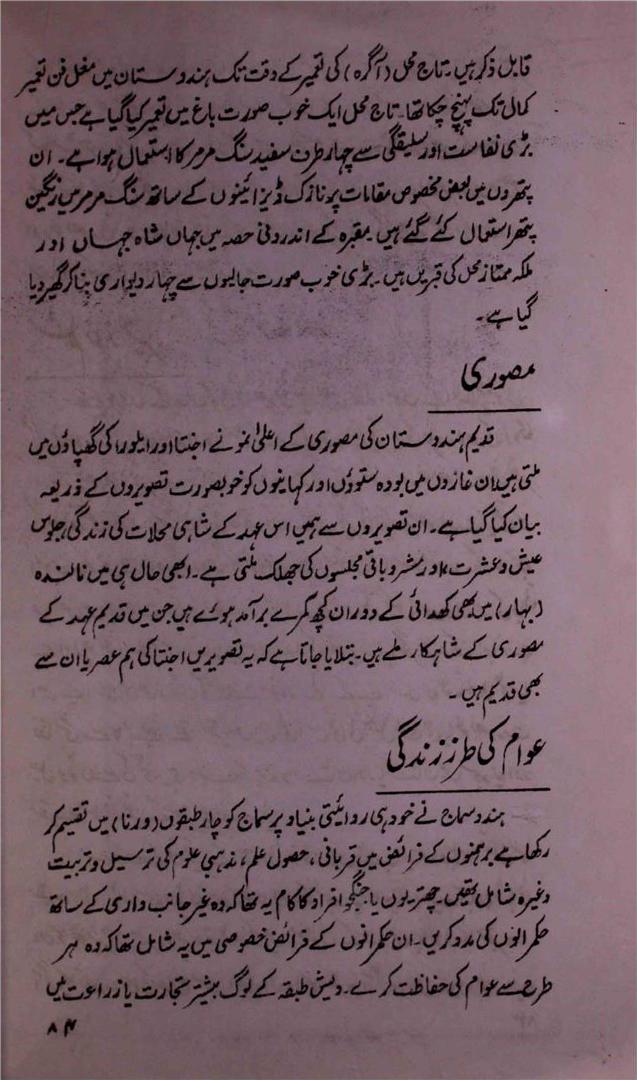 قابل ذکر ہیں۔ تاج محل (آگرہ) کی تعمیر کے وقت تک ہندوستان میں مغل فن تعمیر
کمال تک پہنچ چکا تھا۔ تاج محل ایک خوب صورت باغ میں تعمیر کیا گیا ہے جس میں
بڑی نفاست اور سلیقگی سے چہار طرف سفید سنگ مرمر کا استعمال ہوا ہے۔ ان
پتھروں میں بعض مخصوص مقامات پر نازک ڈیزائینوں کے ساتھ سنگ مرمر میں رنگین
پتھر استعمال کئے گئے ہیں۔ مقبرہ کے اندرونی حصہ میں جہاں شاہ جہاں اور
ملکہ ممتاز محل کی قبریں ہیں۔ بڑی خوب صورت جالیوں سے چہار دیواری بنا کر گھیر دیا
گیا ہے۔
مصوری
قدیم ہندوستان کی مصوری کے اعلیٰ نمونے اجنتا اور ایلورا کی گھپاؤں میں
ملتی ہیں ان غاروں میں بودھ ستوؤں اور کہانیوں کو خوبصورت تصویروں کے ذریعہ
بیان کیا گیا ہے۔ ان تصویروں سے ہمیں اس عہد کے شاہی محلات کی زندگی، جلوس
عیش و عشرت، اور مشروباتی مجلسوں کی جھلک ملتی ہے۔ ابھی حال ہی میں نالندہ
(بہار) میں بھی کھدائی کے دوران کچھ کمرے برآمد ہوئے ہیں جن میں قدیم عہد کے
مصوری کے شاہکار ملے ہیں۔ بتلایا جاتا ہے کہ یہ تصویریں اجنتا کی ہم عصر یا ان سے
بھی قدیم ہیں۔
عوام کی طرز زندگی
ہندو سماج نے خود ہی روائیتی بنیاد پر سماج کو چار طبقوں (ورنا) میں تقسیم کر
رکھا ہے برہمنوں کے فرائض میں قربانی، حصول علم، مذہبی علوم کی ترسیل و تربیت
وغیرہ شامل تھیں۔ چھتریوں یا جنگجو افراد کا کام یہ تھا کہ وہ غیر جانب داری کے ساتھ
حکمرانوں کی مدد کریں۔ ان حکمرانوں کے فرائض خصوصی میں یہ شامل تھا کہ وہ ہر
طرح سے عوام کی حفاظت کرے۔ ویش طبقہ کے لوگ بیشتر تجارت یا زراعت میں
۸۴